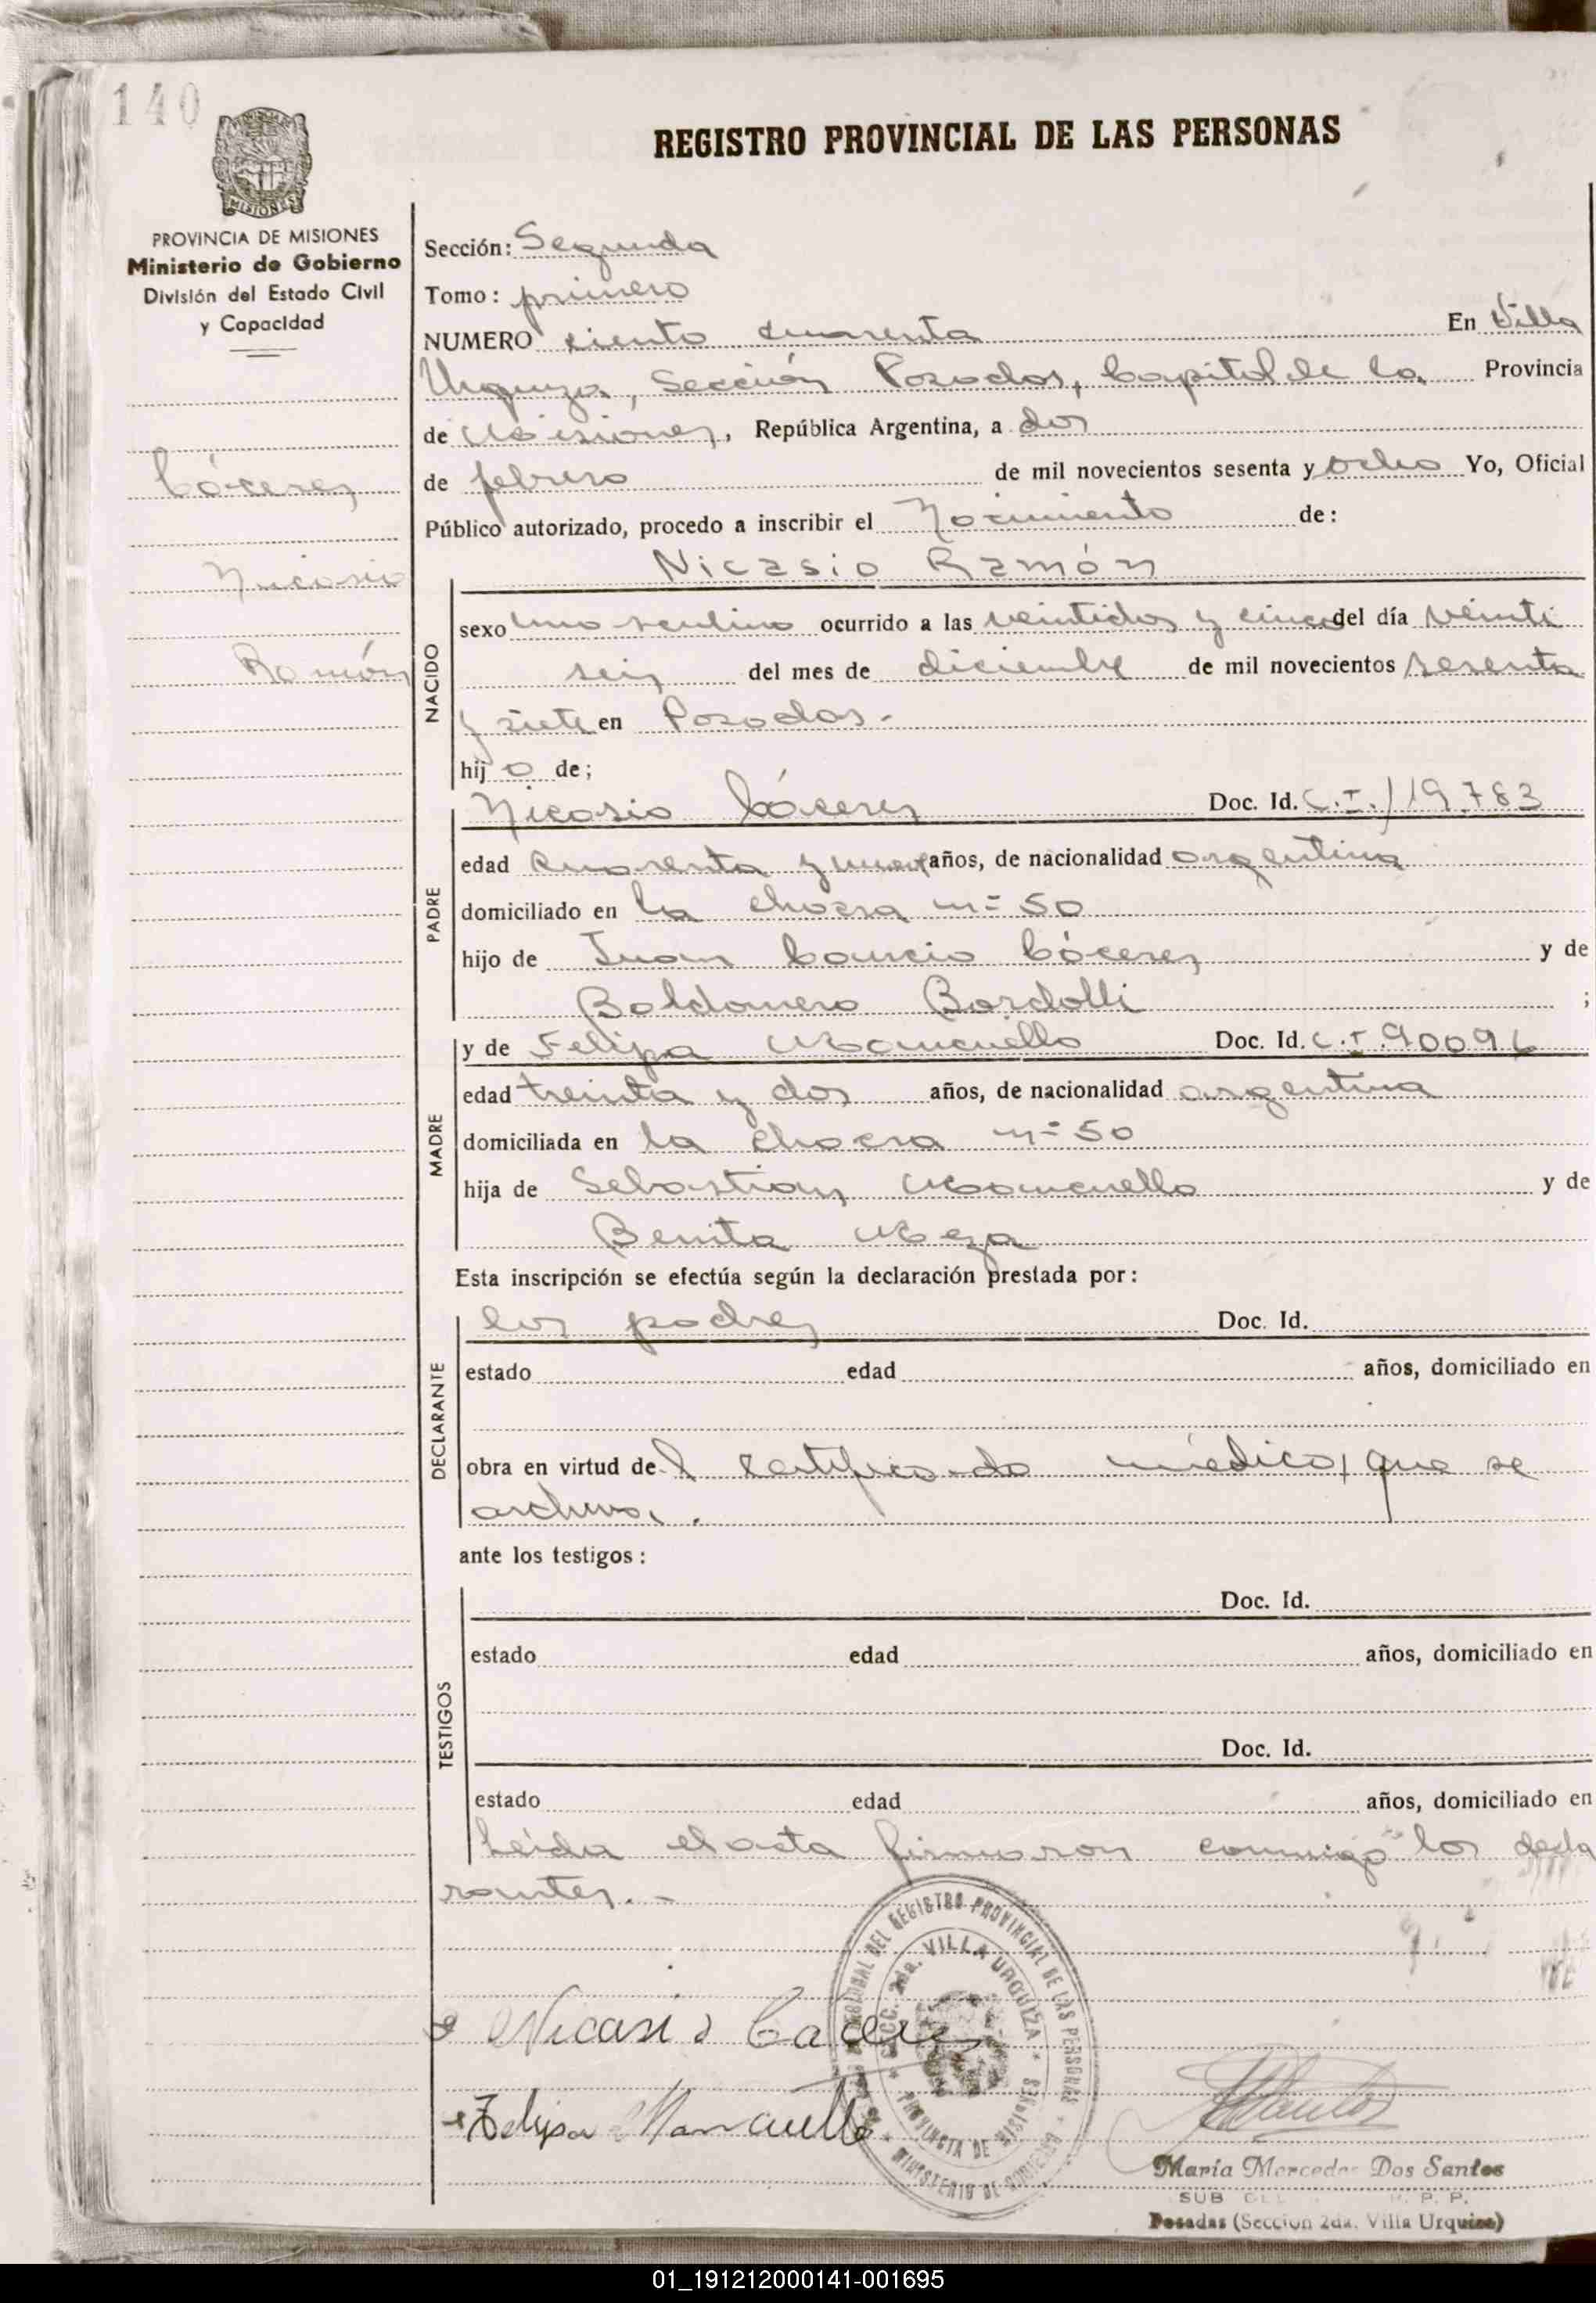 140
REGISTRO PROVINCIAL DE LAS PERSONAS
MISIONES
PROVINCIA DE MISIONES
Ministerio de Gobierno
División del Estado Civil
y Capacidad
Cáceres
Nicasio
Ramón
Sección: Segunda
Tomo: primero
NUMERO ciento cuarenta En Villa
Urquiza, Sección Posadas, Capital de la Provincia
de Misiones, República Argentina, a dos
de febrero de mil novecientos sesenta y ocho Yo, Oficial
Público autorizado, procedo a inscribir el Nacimiento de:
Nicasio Ramón
NACIDO
sexo masculino ocurrido a las veintidos y cinco del día veinti
seis del mes de diciembre de mil novecientos sesenta
y siete en Posadas.
hijo de;
PADRE
Nicasio Cáceres Doc. Id. C.I. 119.783
edad cuarenta y nueve años, de nacionalidad argentina
domiciliado en la chacra nº 50
hijo de Juan Cáceres y de
Baldomera Bardolli ;
MADRE
y de Felipa Mancuello Doc. Id. C.I. 90096
edad treinta y dos años, de nacionalidad argentina
domiciliada en la chacra nº 50
hija de Sebastian Mancuello y de
Benita Meza
Esta inscripción se efectúa según la declaración prestada por:
DECLARANTE
los padres Doc. Id.
estado edad años, domiciliado en
obra en virtud del certificado médico, que se
archiva.
ante los testigos:
TESTIGOS
Doc. Id.
estado edad años, domiciliado en
Doc. Id.
estado edad años, domiciliado en
Leída el acta firmaron conmigo los decla
rantes.
REGISTRO PROVINCIAL DE LAS PERSONAS
SECC. 2da. VILLA URQUIZA
PROVINCIA DE MISIONES
MINISTERIO DE GOBIERNO
Nicasio Caceres
Felipa Mancuello
María Mercedes Dos Santos
SUB R. P. P.
Posadas (Sección 2da. Villa Urquiza)
01_191212000141-001695